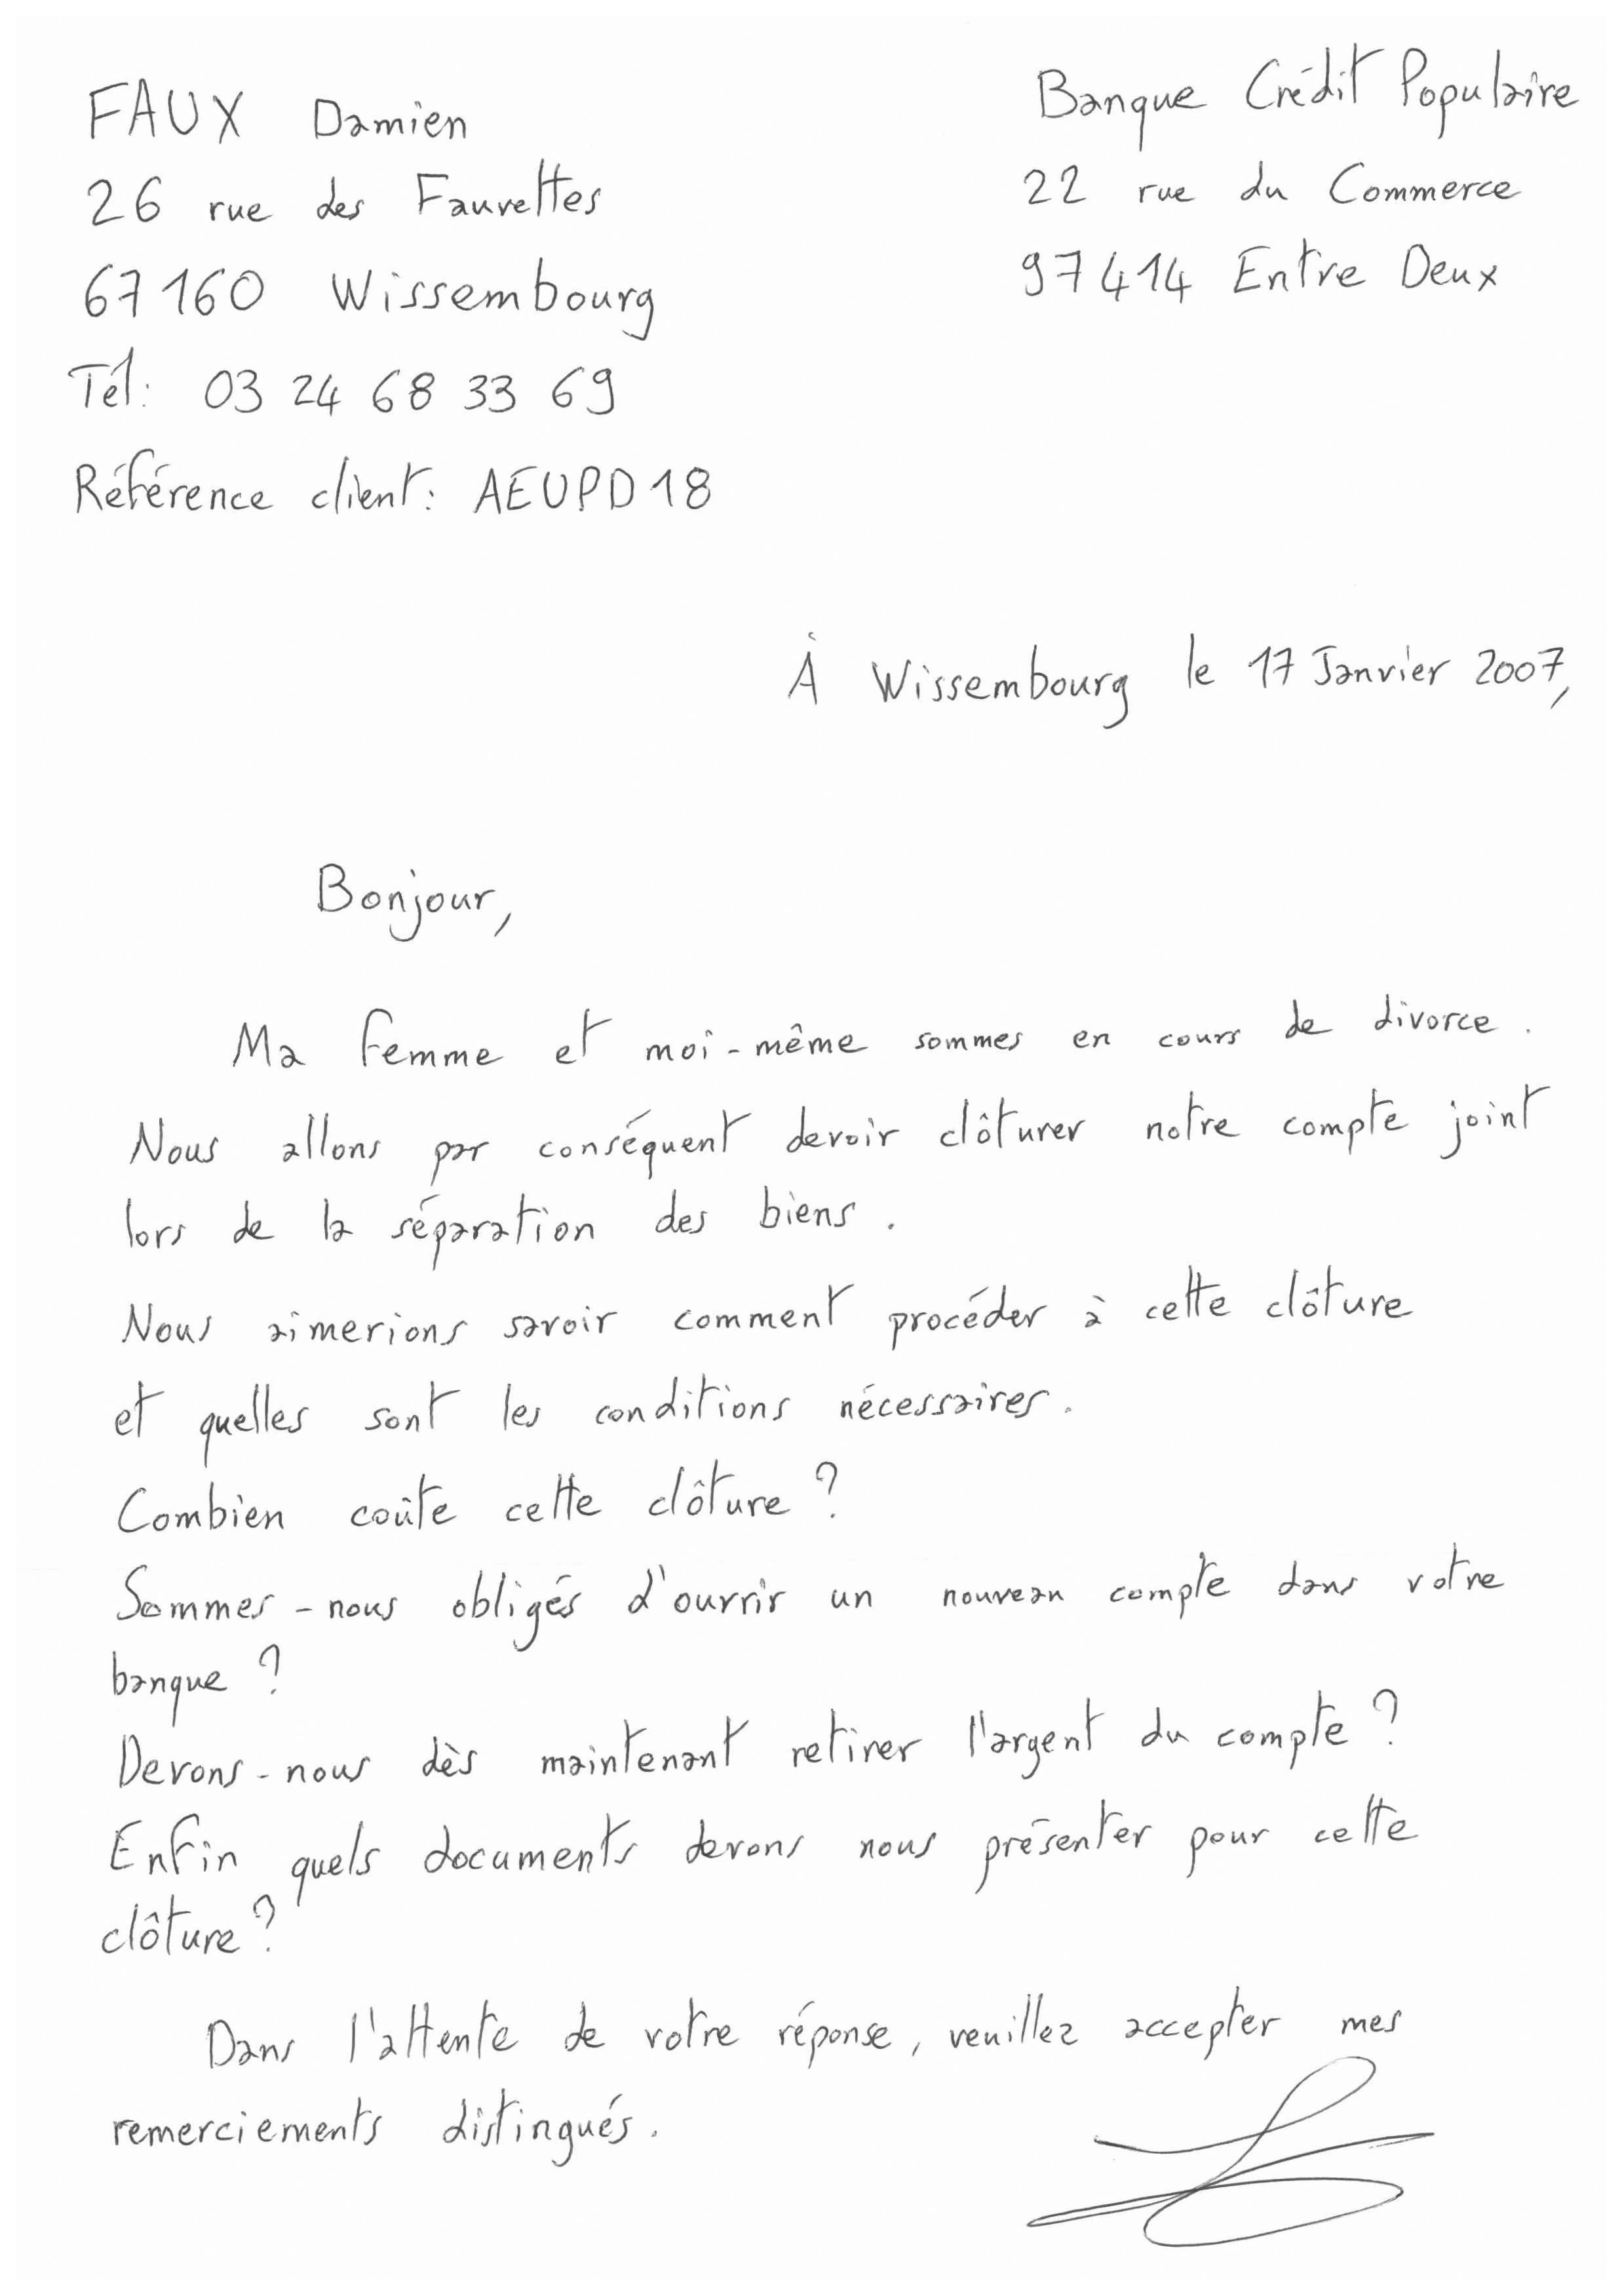 FAUX Damien
26 rue des Fauvettes
67160 Wissembourg
Tél: 03 24 68 33 69
Référence client: AEUPD18
Banque Crédit Populaire
22 rue du Commerce
97414 Entre Deux
À Wissembourg le 17 Janvier 2007,
Bonjour,
Ma femme et moi-même sommes en cours de divorce.
Nous allons par conséquent devoir clôturer notre compte joint
lors de la séparation des biens.
Nous aimerions savoir comment procéder à cette clôture
et quelles sont les conditions nécessaires.
Combien coûte cette clôture ?
Sommes-nous obligés d'ouvrir un nouveau compte dans votre
banque ?
Devons-nous dès maintenant retirer l'argent du compte ?
Enfin quels documents devons nous présenter pour cette
clôture ?
Dans l'attente de votre réponse, veuillez accepter mes
remerciements distingués.